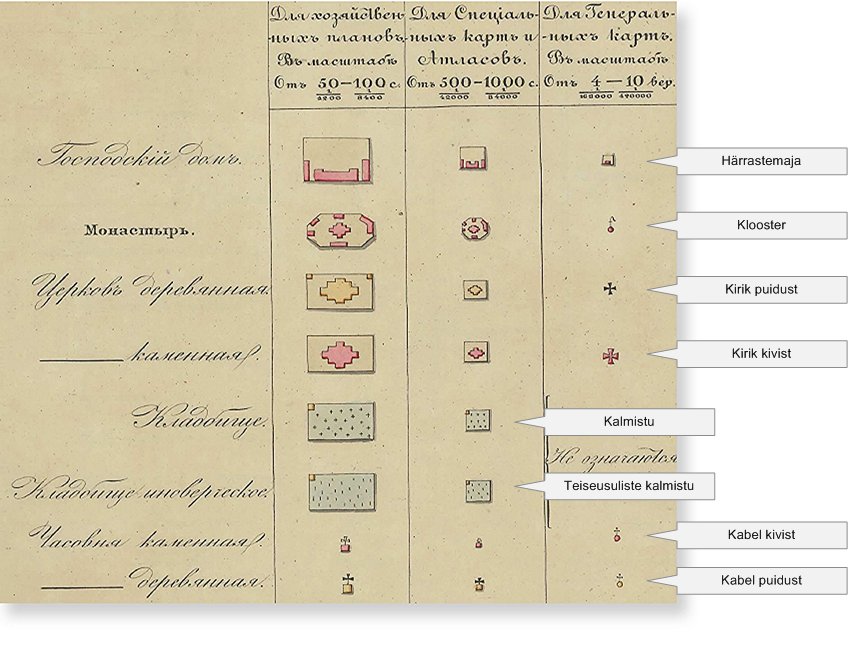 Для хозяйствен-
ныхъ плановъ.
Въ масштабѣ
Отъ 50—100 с.
1/4200 1/8400
Для Спеціаль-
ныхъ картъ и
Атласовъ.
Отъ 500—1000 с.
1/42000 1/84000
Для Генераль-
ныхъ картъ.
Въ масштабѣ
Отъ 4—10 вер.
1/168000 1/420000
Господскій домъ.
Härrastemaja
Монастырь.
Klooster
Церковь деревянная.
Kirik puidust
каменная.
Kirik kivist
Кладбище.
Kalmistu
Не означаются
Кладбище иноверческое.
Teiseusuliste kalmistu
Часовня каменная.
Kabel kivist
деревянная.
Kabel puidust